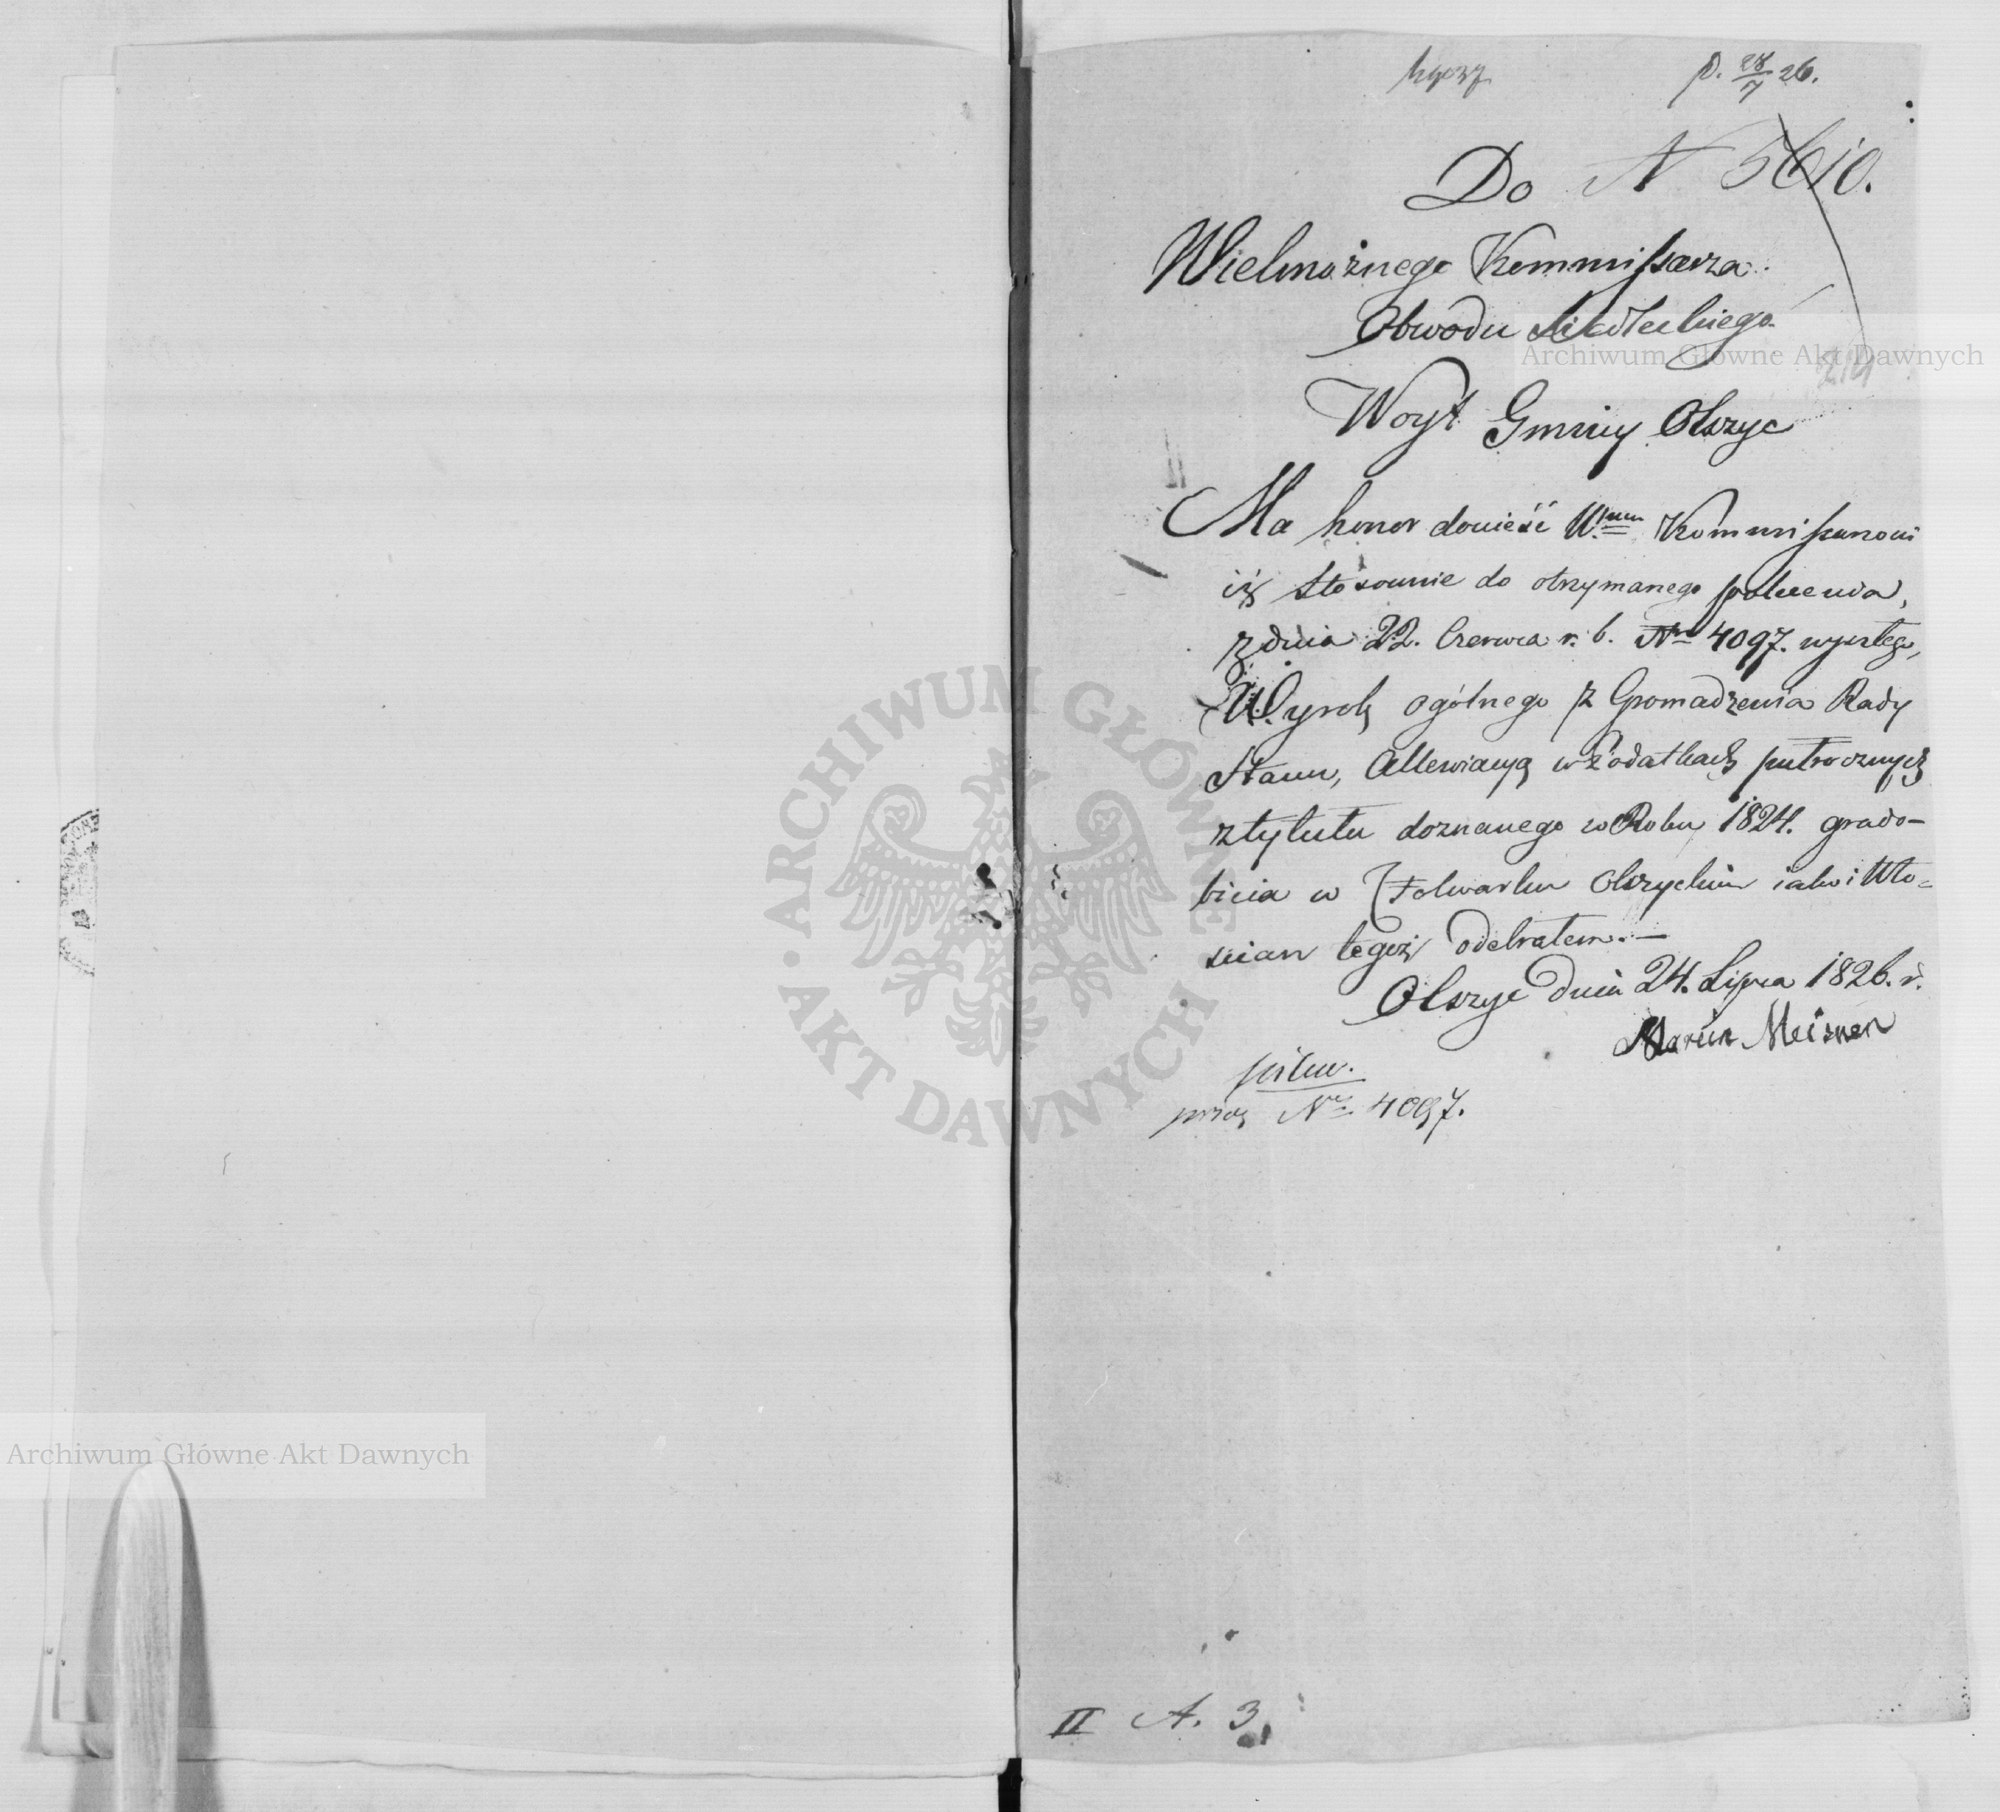 p. 28/7 26.
Do N 5610.
Wielmożnego Kommissarza
Obwodu Siedleckiego
Archiwum Główne Akt Dawnych
214
Woyt Gminy Olszyc
Ma honor donieść W.mu Kommissarzowi
iż stosownie do otrzymanego polecenia,
z dnia 22. Czerwca r. b. Nr 4097. wyszłego,
Wyrok ogólnego Zgromadzenia Rady
Stanu, Allewiacyą w Podatkach
z tytułu doznanego w Roku 1824. grado-
bicia w Folwarku Olszyckim iako i Wło-
scian tegoż odebrałem. —
Olszyc dnia 24. Lipca 1826. r.
Marcin Meisner
pilne.
przez Nr. 4097.
ARCHIWUM GŁÓWNE
AKT DAWNYCH
Archiwum Główne Akt Dawnych
II A. 3